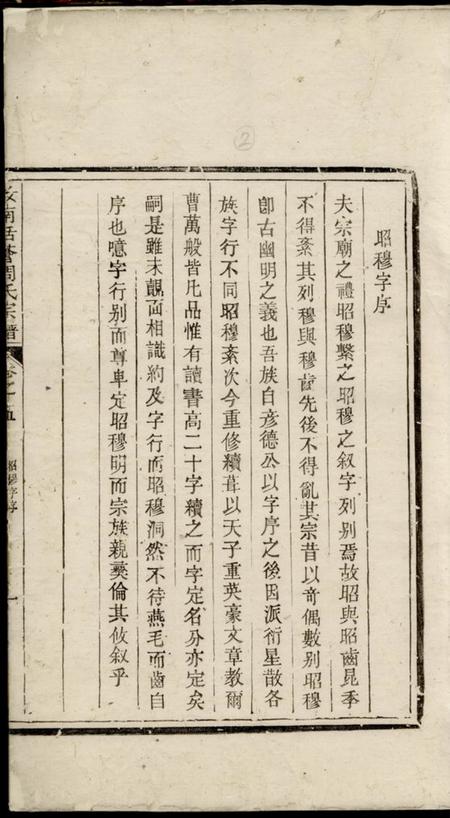 ②
昭穆字序
夫宗廟之禮昭穆繫之昭穆之叙字列别焉故昭與昭齒昆季
不得紊其列穆與穆齒先後不得亂其宗昔以竒偶數别昭穆
卽古幽明之義也吾族自彦德公以字序之後因派衍星散各
族字行不同昭穆紊次今重修續葺以天子重英豪文章教爾
曹萬般皆凡品惟有讀書高二十字續之而字定名分亦定矣
嗣是雖未覿面相識約及字行而昭穆洞然不待燕毛而齒自
序也噫字行别而尊卑定昭穆明而宗族親彛倫其攸叙乎
南周氏宗譜
卷之五
昭穆字序
一